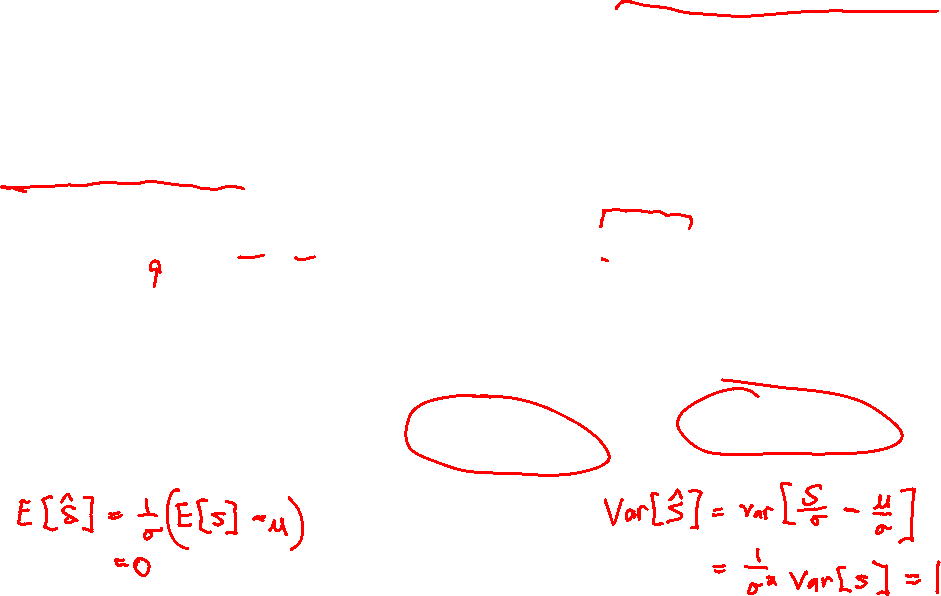 9
E[ŝ] = 1/σ (E[s] - μ)
= 0
Var[Ŝ] = var[S/σ - μ/σ]
= 1/σ² Var[s] = 1